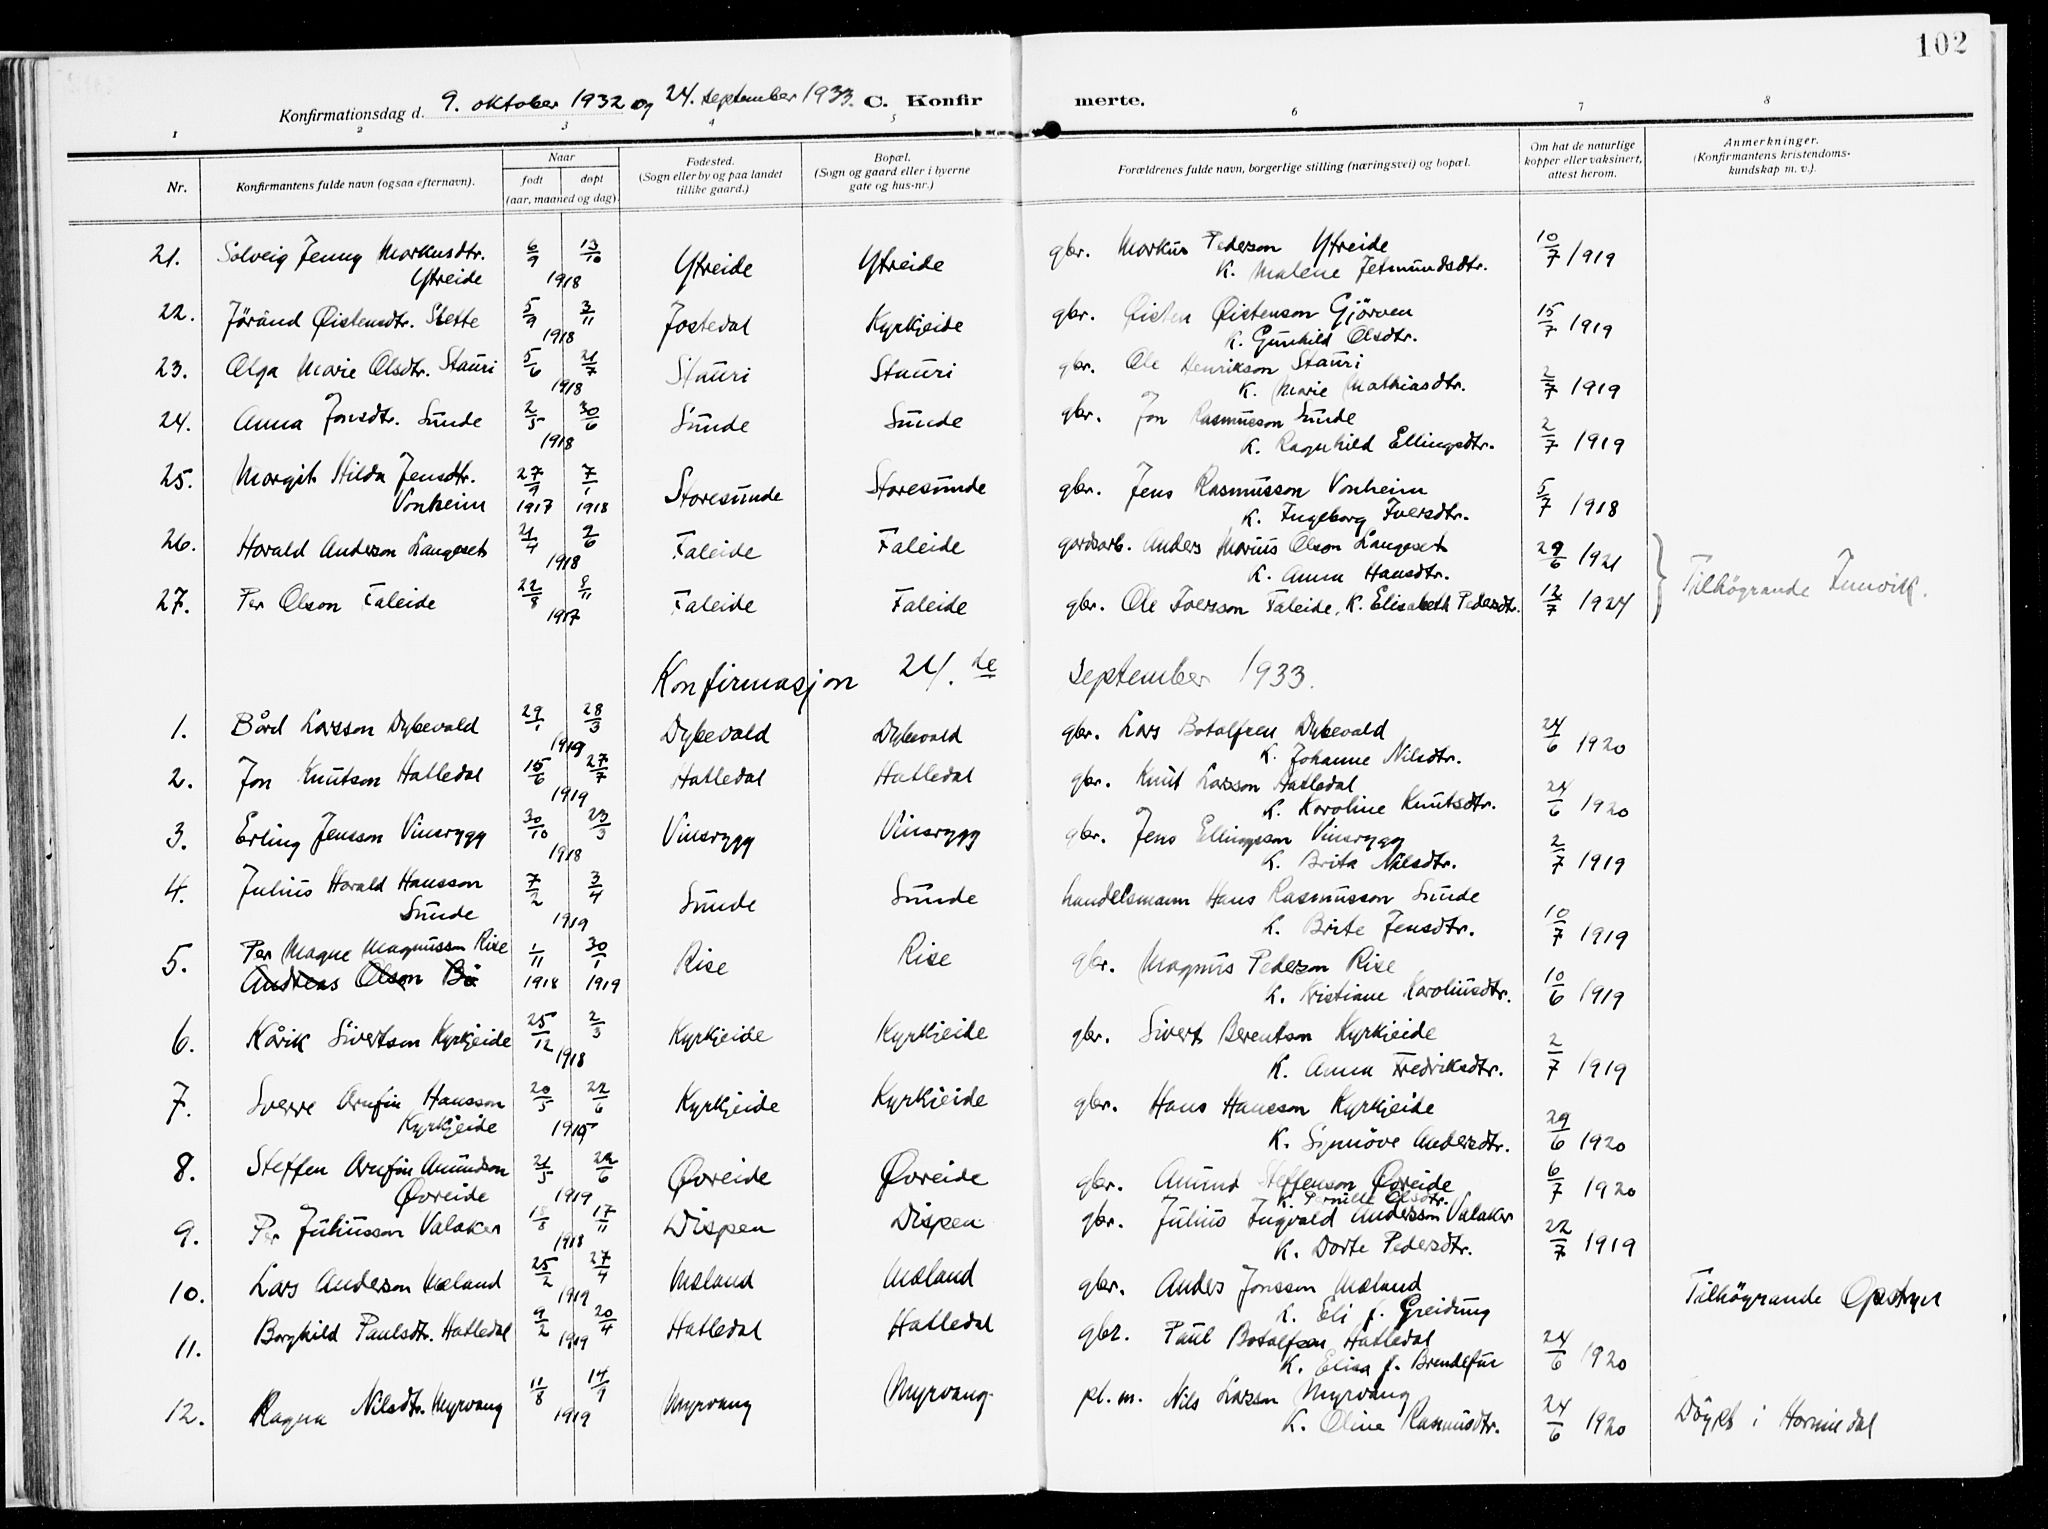 102
Konfirmationsdag d. 9. oktober 1932 og 24. september 1933. C. Konfir merte.
1 2 3 4 5 6 7 8
Nr. Konfirmantens fulde navn (ogsaa efternavn). Naar født døpt (aar, maaned og dag) Fødested. (Sogn eller by og paa landet tillike gaard.) Bopæl. (Sogn og gaard eller i byerne gate og hus-nr.) Forældrenes fulde navn, borgerlige stilling (næringsvei) og bopæl. Om hat de naturlige kopper eller vaksinert, attest herom. Anmerkninger. (Konfirmantens kristendoms-kundskap m. v.).
21. Solveig Jenny Markusdtr. 6/9 13/10 Ytreide Ytreide gbr. Markus Pederson Ytreide 10/7 1919
Ytreide 1918 K. Malene Jetmundsdtr.
22. Jørand Øistensdtr. Slette 5/9 3/11 Jostedal Kyrkjeide gbr. Øisten Øistenson Gjørven 15/7 1919
1918 K. Gunhild Olsdtr.
23. Olga Marie Olsdtr. Stauri 5/6 21/7 Stauri Stauri gbr. Ole Henrikson Stauri
1918 K. Marie Mathiasdtr. 2/7 1919
24. Anna Jonsdtr. Sunde 2/5 30/6 Sunde Sunde gbr. Jon Rasmusson Sunde
1918 K. Ragnhild Ellingsdtr. 2/7 1919
25. Margit Hilda Jensdtr. 27/9 7/1 Storesunde Storesunde gbr. Jens Rasmusson Vonheim 5/7 1918
Vonheim 1917 1918 K. Ingeborg Iversdtr.
26. Harald Anderson Langeset 21/4 2/6 Faleide Faleide gardsarb. Anders Marius Olson Langeset 29/6 1921
1918 K. Anna Hansdtr. } Tilhøyrande Innvik.
27. Per Olson Faleide 22/8 8/11 Faleide Faleide gbr. Ole Iverson Faleide, K. Elisabeth Pedersdtr. 12/7 1924
1917
Konfirmasjon 24.de september 1933.
1. Bård Larsson Dybevald 29/1 28/3 Dybevald Dybevald gbr. Lars Botolfsen Dybevald 24/6 1920
1919 K. Johanne Nilsdtr.
2. Jon Knutson Hatledal 15/6 27/7 Hatledal Hatledal gbr. Knut Larsson Hatledal
1919 K. Karoline Knutsdtr. 24/6 1920
3. Erling Jensson Vinsrygg 30/10 23/3 Vinsrygg Vinsrygg gbr. Jens Ellingsson Vinsrygg
1918 K. Brita Nilsdtr. 2/7 1919
4. Julius Harald Hansson 7/2 3/4 Sunde Sunde handelsmann Hans Rasmusson Sunde
Sunde 1919 K. Brite Jensdtr. 10/7 1919
5. Per Magne Magnusson Rise 1/11 30/1 Rise Rise gbr. Magnus Pederson Rise
Andreas Olson Bø 1918 1919 K. Kristiane Karoliusdtr. 10/6 1919
6. Kårik Sivertson Kyrkjeide 25/12 2/3 Kyrkjeide Kyrkjeide gbr. Sivert Berentson Kyrkjeide
1918 K. Anna Fredriksdtr. 2/7 1919
7. Sverre Arnfin Hansson 20/5 22/6 Kyrkjeide Kyrkjeide gbr. Hans Hansson Kyrkjeide
Kyrkjeide 1919 K. Synnöve Andersdtr. 29/6 1920
8. Steffen Arnfin Amundson 21/5 22/6 Øvreide Øvreide gbr. Amund Steffenson Øvreide 6/7 1920
Øvreide 1919 K. Pernille Olsdtr.
9. Per Juliusson Valaker 18/8 17/11 Dispen Dispen gbr. Julius Ingvald Andersson Valaker
1918 K. Dorte Pedersdtr. 22/7 1919
10. Lars Anderson Mæland 25/2 27/4 Mæland Mæland gbr. Anders Jonsson Mæland Tilhøyrande Opstryn
1919 K. Eli f. Greidung
11. Borghild Paulsdtr. Hatledal 9/2 20/4 Hatledal Hatledal gbr. Paul Botolfsen Hatledal
1919 K. Elisa f. Brendefur 24/6 1920
12. Ragna Nilsdtr. Myrvang 11/8 14/9 Myrvang Myrvang pl. m. Nils Larsson Myrvang
1919 K. Oline Rasmusdtr. 24/6 1920 Døypt i Hornindal